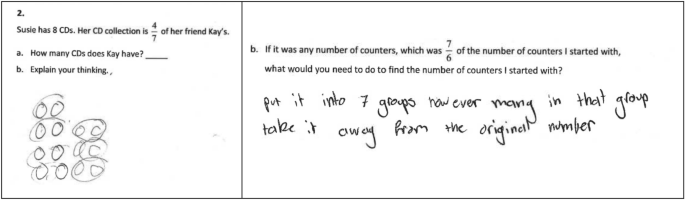 2.
Susie has 8 CDs. Her CD collection is 4/7 of her friend Kay's.
a. How many CDs does Kay have? ____
b. Explain your thinking.,
b. If it was any number of counters, which was 7/6 of the number of counters I started with,
what would you need to do to find the number of counters I started with?
put it into 7 groups how ever many in that group
take it away from the original number